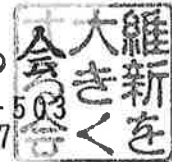 維新を
大きく
会
の
503
7